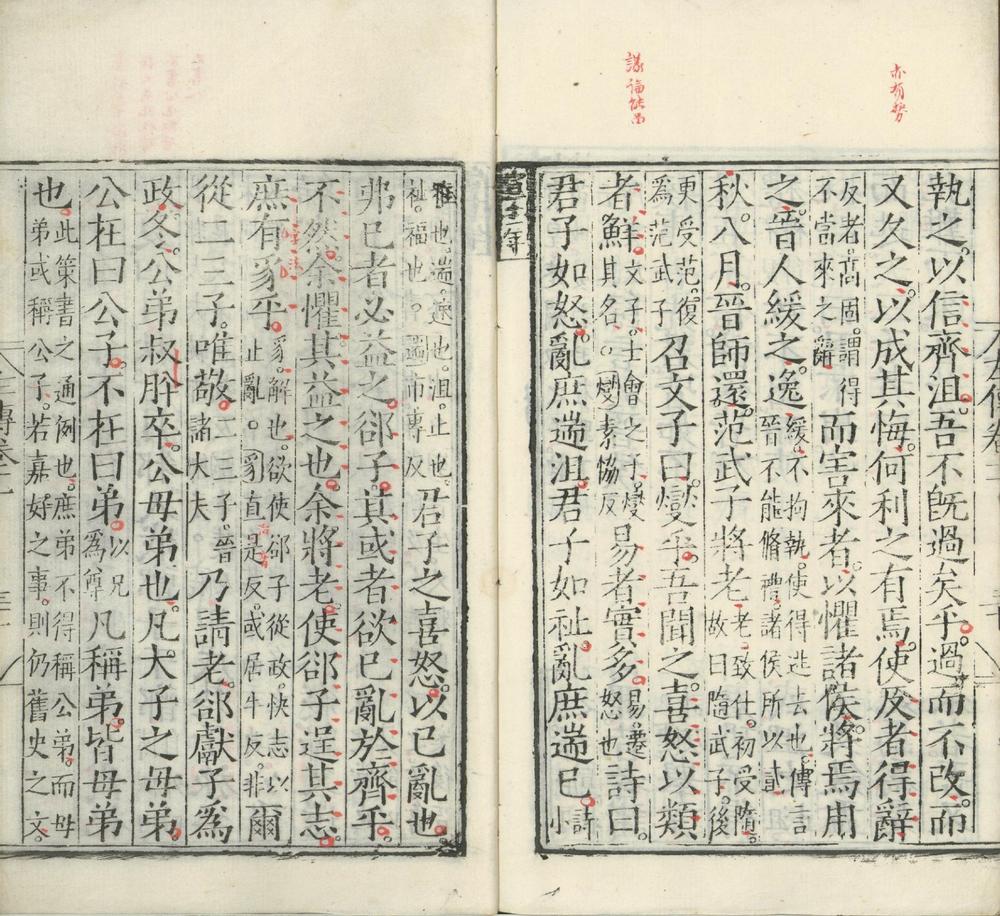 亦有勢
議論
執之。以信齊沮。吾不旣過矣乎。過而不改。而
又久之。以成其悔。何利之有焉。使反者得辭
反者。高固。謂得不當來之辭而害來者。以懼諸侯。將焉用
之。晉人緩之。逸緩。不拘執。使得逃去也。傳言晉不能脩禮。諸侯所以貳
秋。八月。晉師還。范武子將老老。致仕。初受隨。故曰隨武子。後
更受范。復爲范武子召文子曰。燮乎。吾聞之。喜怒以類
者鮮。文子。士會之子。燮其名。○燮素恊反易者實多。易。遷怒也詩曰。
君子如怒。亂庶遄沮。君子如祉。亂庶遄已。詩小
雅也。遄。速也。沮。止也。祉。福也。○遄市專反君子之喜怒。以已亂也。
弗已者必益之。郤子。其或者欲已亂於齊乎。
不然。余懼其益之也。余將老。使郤子逞其志。
庶有豸乎。豸。解也。欲使郤子從政快志以止亂。○豸直是反。或居牛反。非爾
從二三子。唯敬。二三子。晉諸大夫乃請老。郤獻子爲
政。冬。公弟叔肸卒。公母弟也。凡大子之母弟。
公在曰公子。不在曰弟。以兄爲尊凡稱弟。皆母弟
也。此策書之通例也。庶弟不得稱公弟。而母弟或稱公子。若嘉好之事。則仍舊史之文。